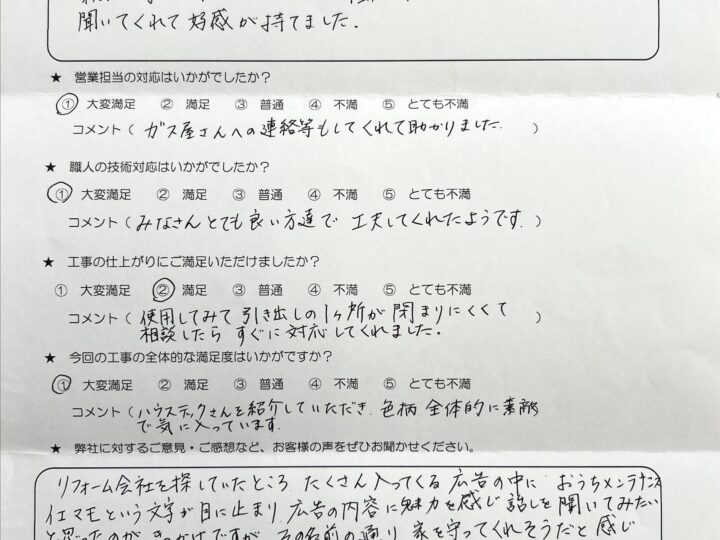 聞いてくれて好感が持てました.
★ 営業担当の対応はいかがでしたか？
① 大変満足 ② 満足 ③ 普通 ④ 不満 ⑤ とても不満
コメント（ ガス屋さんへの連絡等もしてくれて助かりました. ）
★ 職人の技術対応はいかがでしたか？
① 大変満足 ② 満足 ③ 普通 ④ 不満 ⑤ とても不満
コメント（ みなさんとても良い方達で 工夫してくれたようです. ）
★ 工事の仕上がりにご満足いただけましたか？
① 大変満足 ② 満足 ③ 普通 ④ 不満 ⑤ とても不満
コメント（ 使用してみて 引き出しの1ヶ所が 閉まりにくくて ）
相談したら すぐに対応してくれました.
★ 今回の工事の全体的な満足度はいかがですか？
① 大変満足 ② 満足 ③ 普通 ④ 不満 ⑤ とても不満
コメント（ ハウステックさんを紹介していただき. 色柄 全体的に素敵
で気に入っています. ）
★ 弊社に対するご意見・ご感想など、お客様の声をぜひお聞かせください。
リフォーム会社を探していたところ たくさん入ってくる 広告の中に おうちメンテナンス
イエマモという文字が目に止まり 広告の内容に魅力を感じ 話しを聞いてみたい
と思ったのが きっかけですが その名前の通り 家を守ってくれそうだと感じ